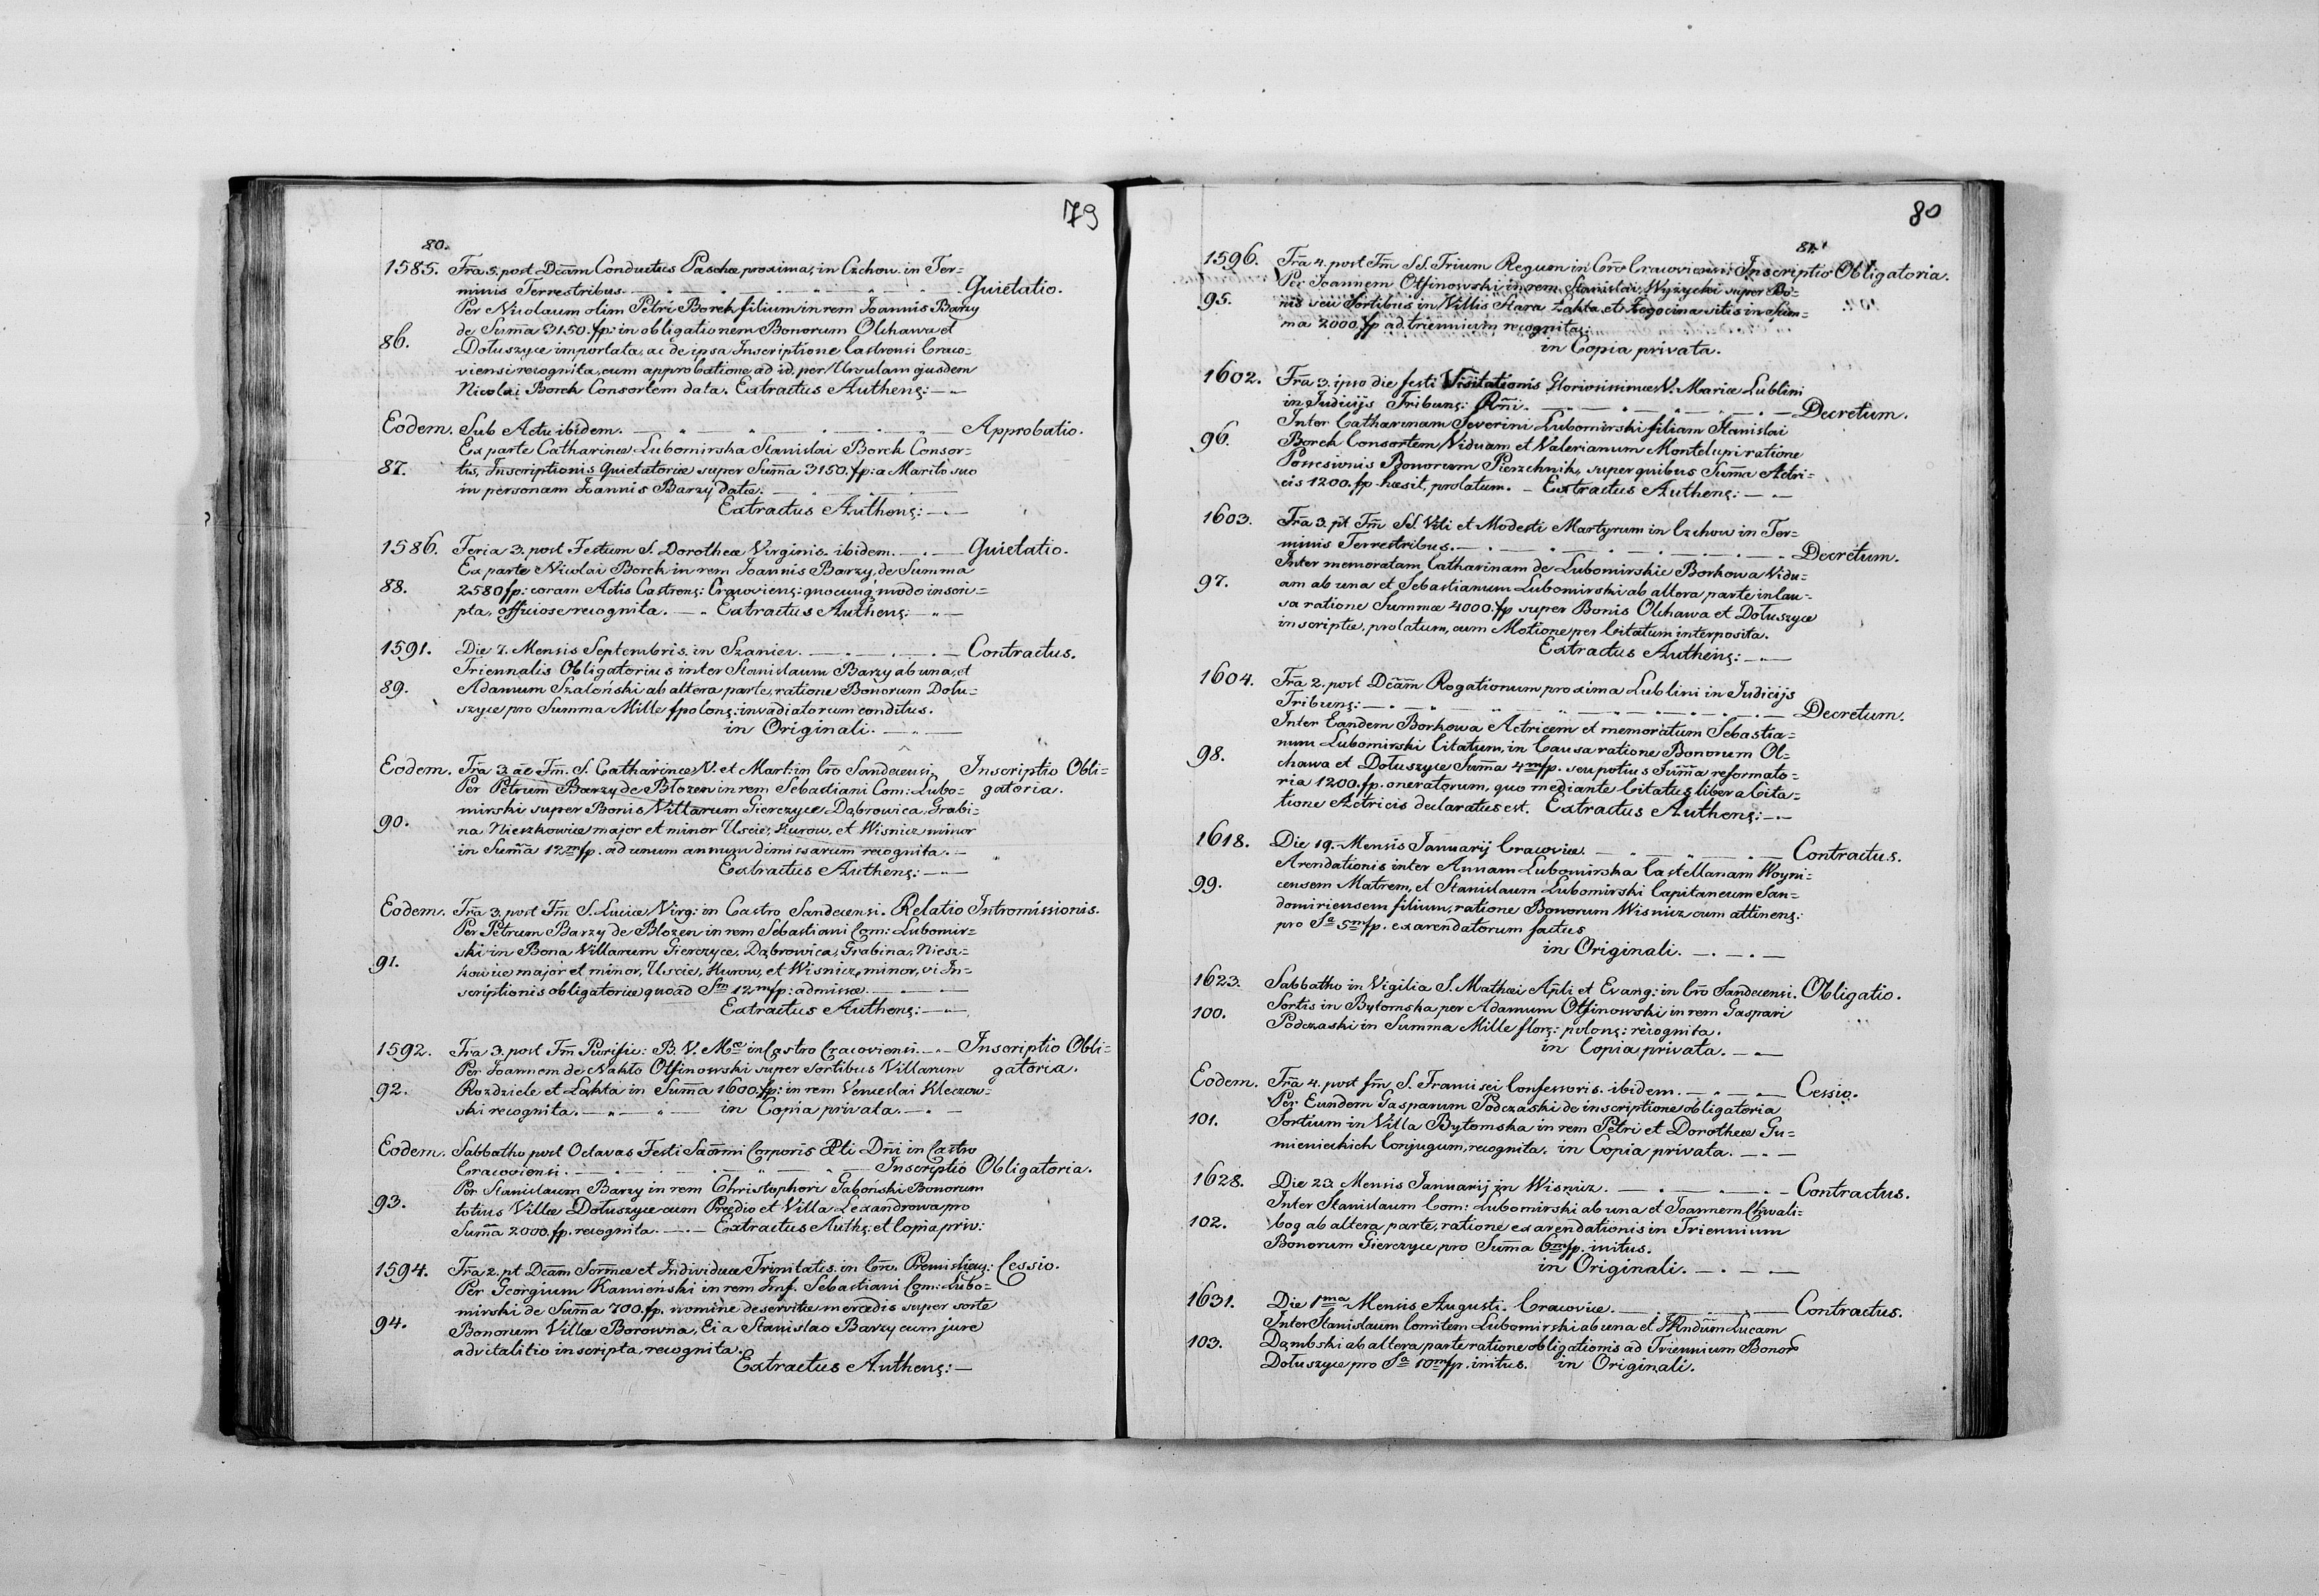 79
80.
1585. Fra 5. post Dcam Conductus Paschæ proxima, in Czchow in Ter=
minis Terrestribus. Quietatio.
Per Nicolaum olim Petri Borek filium in rem Joannis Barzy
de Suma 3150. fp: in obligationem Bonorum Olchawa et
86. Dołuszyce importata, ac de ipsa Inscriptione Castrensi Craco=
viensi recognita, cum approbatione ad id. per Ursulam ejusdem
Nicolai Borek Consortem data. Extractus Authens:
Eodem. Sub Actu ibidem. Approbatio.
Ex parte Catharinæ Lubomirska Stanislai Borek Consor=
87. tis, Inscriptionis Quietatoriæ super Suma 3150. fp: a Marito suo
in personam Joannis Barzy datæ.
Extractus Authens:
1586. Feria 3. post Festum S. Dorotheæ Virginis. ibidem. Quietatio.
Ex parte Nicolai Borek in rem Joannis Barzy, de Summa
88. 2580 fp: coram Actis Castrens: Cracoviens: quocunq modo inscri=
pta, officiose recognita. Extractus Authens:
1591. Die 7. Mensis Septembris. in Szaniec. Contractus.
Triennalis Obligatorius inter Stanislaum Barzy ab una, et
89. Adamum Szaloński ab altera parte, ratione Bonorum Dołu=
szyce pro Summa Mille fpolons: invadiatorum conditus.
in Originali.
Eodem. Fra 3. ae Fm. S. Catharinæ V. et Mart: in Cro Sandecensi, Inscriptio Obli=
Per Petrum Barzy de Błozen in rem Sebastiani Com: Lubo= gatoria.
mirski super Bonis Villarum Gierczyce, Dąbrowica, Grabi=
90. na, Nieszkowice major et minor Uscie, Kurow, et Wisnicz minor
in Suma 12m fp. ad unum annum dimissarum recognita.
Extractus Authens:
Eodem. Fra 3. post Fm S. Luciæ Virg: in Castro Sandecensi. Relatio Intromissionis.
Per Petrum Barzy de Blozen in rem Sebastiani Com: Lubomir=
ski in Bona Villarum Gierczyce, Dąbrowica, Grabina, Niesz=
91. kowice major et minor, Uscie, Kurow, et Wisnicz minor, vi In=
scriptionis obligatoriæ quoad Sm 12m fp: admissæ.
Extractus Authens:
1592. Fra 3. post Fm Purific: B. V. Mæ in Castro Cracoviensi. Inscriptio Obli=
Per Joannem de Nakło Otfinowski super Sortibus Villarum gatoria.
92. Rozdziele et Łąkta in Suma 1600. fp: in rem Venceslai Kleczow=
ski recognita. in Copia privata.
Eodem. Sabbatho post Octavas Festi Sacrmi Corporis Xti Dni in Castro
Cracoviensi. Inscriptio Obligatoria.
Per Stanislaum Barzy in rem Christophori Gaboński Bonorum
93. totius Villæ Dołuszyce cum Prædio et Villa Lexandrowa pro
Suma 2000. fp. recognita. Extractus Auths: et Copia priv:
1594. Fra 2. pt Dcam Scrmæ et Individuæ Trinitatis. in Cro. Premisliens: Cessio.
Per Georgium Kamieński in rem Imf. Sebastiani Com: Lubo=
mirski de Suma 700. fp. nomine deservitæ mercedis super sorte
94. Bonorum Villæ Borowna, Ei a Stanislao Barzy cum jure
advitalitio inscripta, recognita.
Extractus Authens:
80
81.
1596. Fra 4. post Fm SS. Trium Regum in Cro Cracoviensi: Inscriptio Obligatoria.
Per Joannem Otfinowski in rem Stanislai Wyżycki super Bo=
95. nis seu Sortibus in Villis Stara Łąkta et Żegocina sitis in Sum=
ma 2000. fp ad triennium recognita:
in Copia privata.
1602. Fra 3. ipso die festi Visitationis Gloriosissimæ V. Mariæ Lublini
in Judicijs Tribuns: Rni. Decretum.
Inter Catharinam Severini Lubomirski filiam Stanislai
96. Borek Consortem Viduam et Valerianum Montelupi ratione
Possesionis Bonorum Pierzchnik, super quibus Suma Actri=
cis 1200. fp hæsit, prolatum. Extractus Authens:
1603. Fra 3. pt Fm SS. Viti et Modesti Martyrum in Czchow in Ter=
minis Terrestribus. Decretum.
Inter memoratam Catharinam de Lubomirskie Borkowa Vidu=
97. am ab una et Sebastianum Lubomirski ab altera parte in Cau=
sa ratione Summæ 4000. fp super Bonis Olchawa et Dołuszyce
inscriptæ, prolatum, cum Motione per Citatum interposita.
Extractus Authens:
1604. Fra 2. post Dcam Rogationum proxima Lublini in Judicijs
Tribuns: Decretum.
Inter Eandem Borkowa Actricem et memoratum Sebastia=
num Lubomirski Citatum, in Causa ratione Bonorum Ol=
98. chawa et Dołuszyce Suma 4m fp. seu potius Suma reformato=
ria 1200. fp. oneratorum, quo mediante Citatus liber a Cita=
tione Actricis declaratus est. Extractus Authens:
1618. Die 19. Mensis Januarij Cracoviæ. Contractus.
Arendationis inter Annam Lubomirska Castellanam Woyni=
99. censem Matrem, et Stanislaum Lubomirski Capitaneum San=
domiriensem filium, ratione Bonorum Wisnicz cum attinens:
pro Sa 5m fp. exarendatorum factus
in Originali.
1623. Sabbatho in Vigilia S. Mathæi Apli et Evang: in Cro Sandecensi. Obligatio.
100. Sortis in Bytomska per Adamum Otfinowski in rem Gaspari
Podczaski in Summa Mille flors: polons: recognita.
in Copia privata.
Eodem. Fra 4. post fm S. Francisci Confessoris. ibidem. Cessio.
Per Eundem Gasparum Podczaski de inscriptione obligatoria
101. Sortium in Villa Bytomska in rem Petri et Dorotheæ Gu=
mienickich Conjugum, recognita. in Copia privata.
1628. Die 23. Mensis Januarij in Wisnicz. Contractus.
Inter Stanislaum Com: Lubomirski ab una et Joannem Chwali=
102. bog ab altera parte, ratione exarendationis in Triennium
Bonorum Gierczyce pro Suma 6m fp. initus.
in Originali.
1631. Die 1ma Mensis Augusti. Cracoviæ. Contractus.
Inter Stanislaum Comitem Lubomirski ab una et Lucam
103. Dąmbski ab altera parte ratione obligationis ad Triennium Bonor
Dołuszyce pro Sa 10m fp. initus. in Originali.